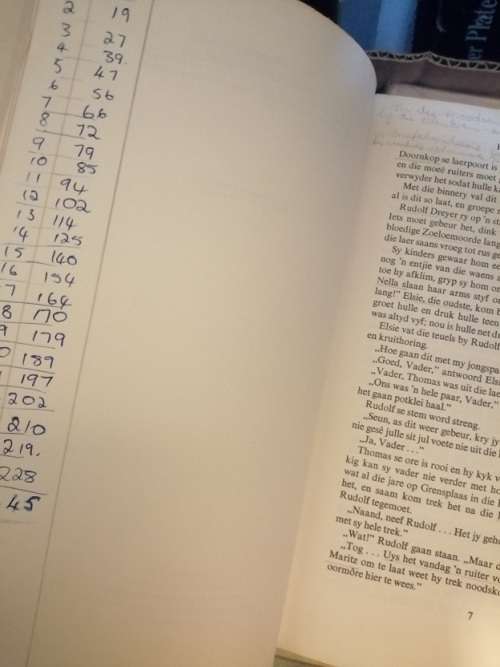 2 19
3 27
4 39.
5 47
6 56
7 66
8 72
9 79
10 85
11 94
12 102
13 114
14 125
15 140
16 154
7 164
8 170
9 179
0 189
197
202
210
219.
228
45
er Plate
Doornkop se laerpoort is
en die moeë ruiters moet
verwyder het sodat hulle k
Met die binnery val dit
al is dit so laat, en groepe s
Rudolf Dreyer ry op 'n st
Iets moet gebeur het, dink
bloedige Zoeloemoorde lang
die laer saans vroeg tot rus ge
Sy kinders gewaar hom ee
nog 'n entjie van die waens a
toe hy afklim, gryp sy hom on
Nella slaan haar arms styf o
lang!" Elsie, die oudste, kom b
groet hulle en druk hulle teen
was altyd vyf; nou is hulle net d
Elsie vat die teuels by Rudolf
en kruithoring.
„Hoe gaan dit met my jongspa
„Goed, Vader," antwoord El
„Vader, Thomas was uit die lae
„Ons was 'n hele paar, Vader."
het gaan potklei haal."
Rudolf se stem word streng.
„Seun, as dit weer gebeur, kry j
nie gesê julle sit jul voete nie uit die l
„Ja, Vader . . ."
Thomas se ore is rooi en hy kyk v
kig kan sy vader nie verder met ho
wat al die jare op Grensplaas in die
het, en saam kom trek het na die
Rudolf tegemoet.
„Naand, neef Rudolf . . . Het jy geh
met sy hele trek."
„Wat!" Rudolf gaan staan. „Maar d
„Tog . . . Uys het vandag 'n ruiter vo
Maritz om te laat weet hy trek noodsk
oormôre hier te wees."
7